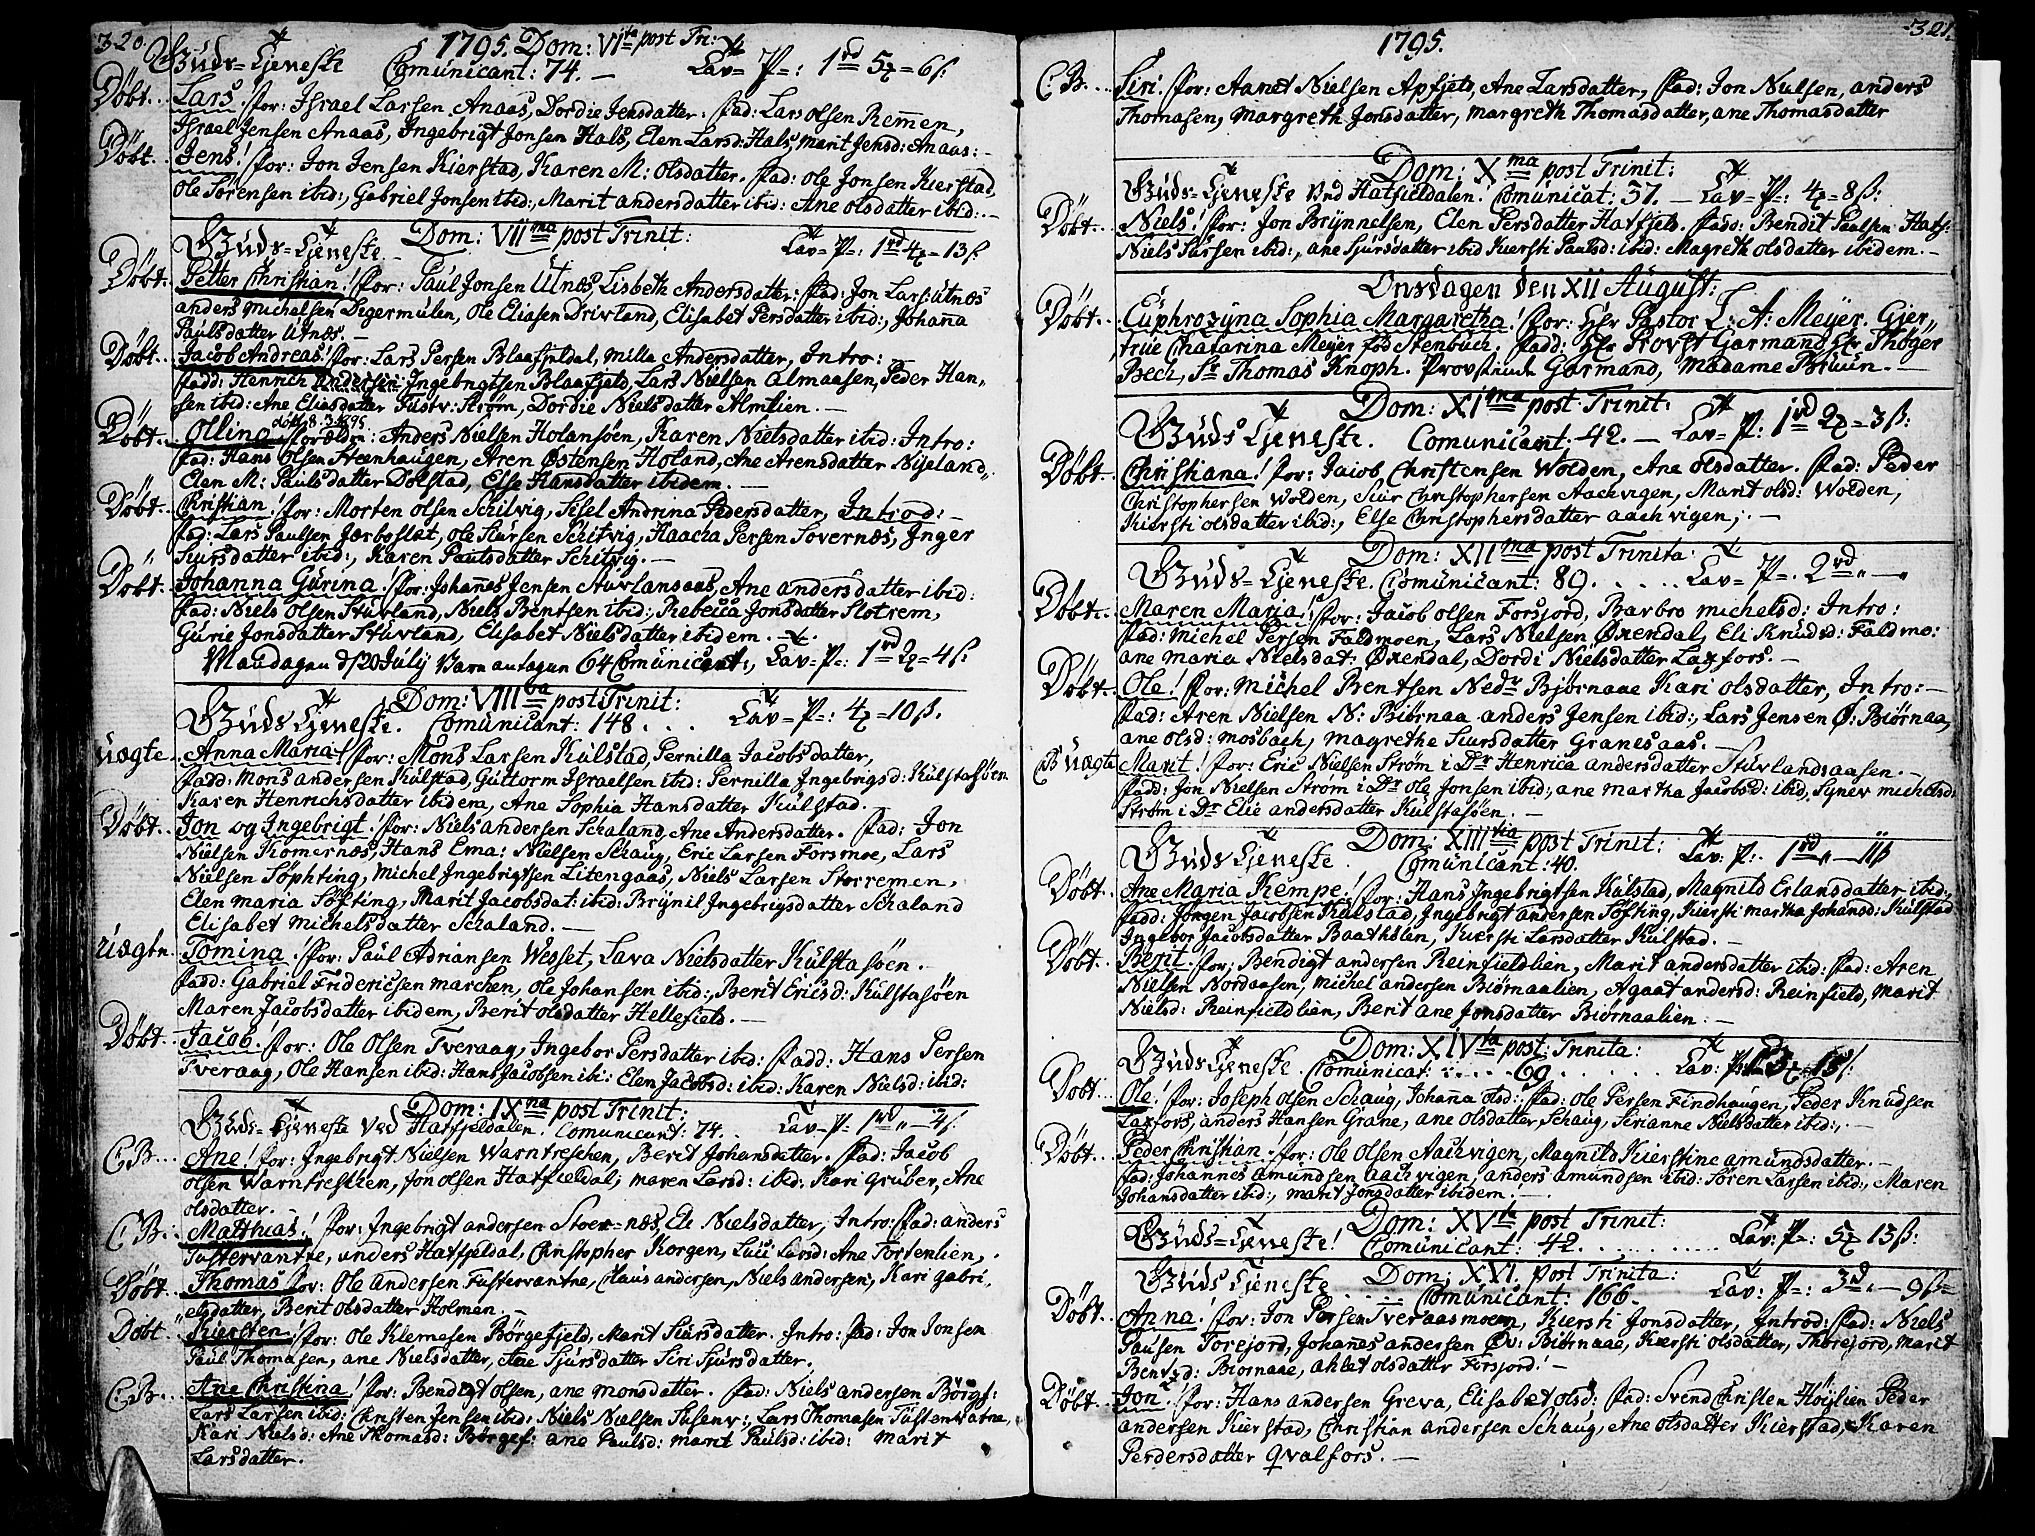 320.
1795. Dom: VIta post Tri:
Guds=Tjeneste Comunicant: 74. — Tav=P=: 1rd 5=6ß:
Døbt. Lars! for: Israel Larsen Anaas, Dordie Jensdatter. fad: Lars Olsen Remen,
Israel Jensen Anaas, Ingebrigt Jonsen Hals, Elen Larsd: Hals, Marit Jensd: Anaas:—
Døbt. Jens! for: Jon Jensen Kierstad, Karen M: olsdatter. fad: ole Jonsen Kierstad,
Ole Sørensen ibid:, Gabriel Jonsen ibid:, Marit andersdatter ibid: Ane olsdatter ibid:.—
Dom: VIIma post Trinit:
Guds=Tjeneste. Tav=P=: 1rd 4=13ß
Døbt. Petter Christian! for: Paul Jonsen Utnæs, Lisbeth Andersdatter: fad: Jon Lars: Utnæs
anders Michelsen Digermulen, Ole Eliasen Drivland, Elisabet Persdatter ibid:, Johana
Paulsdatter Utnæs.—
Døbt. Jacob Andreas! for: Lars Persen Blaafjeldal, Milla Andersdatter, Intro:
fadd: Henrich Andersen Ingebrigtsen Blaafjeld, Lars Nielsen Almaasen, Peder Han=
sen ibid: Ane Eliasdatter Fustv: Strøm, Dordie Nielsdatter Almlien.—
død 8.3.1895
Døbt. Ollina forældre: Anders Nielsen Holandsøen, Karen Nielsdatter ibid: Intro:
fad: Hans olsen Steenhaugen, Aren Østensen Holand, Ane Arensdatter Nyeland,
Elen M: Paulsdatter Dolstad, Else Hansdatter ibidem.—
Døbt. Christian! for: Morten olsen Schilvig, Sisel Andrina Pedersdatter, Introd:—
fad: Lars Paulsen Jærboslet, ole Siursen Schilvig, Haacka Persen Sovernæs, Inger
Siursdatter ibid:, Karen Paulsdatter Schilvig.—
Døbt. Johanna Gurina! for: Johanes Jensen Sturlansaas, Ane andersdatter ibid:
fad: Niels Olsen Sturland, Niels Bentsen ibid:, Rebecca Jonsdatter Slotrem,
Gurie Jonsdatter Sturland, Elisabet Nielsdatter ibidem.
Mandagen d/20 July Vare antagen 64 Comunicant:, Tav=P=: 1rd 2=4ß:
Dom: VIIIva post Trinit:
Guds Tjeneste. Comunicant: 148 . . . Tav=P=: 4=10ß.
Uægte. Anna Maria! for: Mons Larsen Kulstad, Pernilla Jacobsdatter,
fadd: Mons andersen Kulstad, Guttorm Israelsen ibid: Pernilla Ingebrigsd: Kulstasøen
Karen Henrichsdatter ibidem, Ane Sophia Hansdatter Kulstad.—
Døbt. Jon og Ingebrigt! for: Niels andersen Schaland, Ane Andersdatter. fad: Jon
Nielsen Komernæs, Hans Ema: Nielsen Schaug, Eric Larsen Forsmoe, Lars
Nielsen Søphting, Michel Ingebrigtsen Litengaas, Niels Larsen Storremen,
Elen maria Søfting, Marit Jacobsdat: ibid: Brynil Ingebrigsdatter Schaland
Elisabet Michelsdatter Schaland.—
Uægte. Tomina! for: Paul Adriansen Wesset, Lava Nielsdatter Kulstasøen.
fadd: Gabriel Fridericsen marchen, Ole Johansen ibid:, Berit Ericsd: Kulstasøen
Maren Jacobsdatter ibidem, Berit olsdatter Hellefiels.—
Døbt. Jacob! for: Ole Olsen Tveraag, Ingebor Persdatter ibid: fadd: Hans Persen
Tveraag, Ole Hansen ibid: Hans Jacobsen ib: Elen Jacobsd: ibid: Karen Nielsd: ibid:
Dom: IXna post Trinit:
Guds=Tjeneste Ved Hatfjeldalen. Comunicant: 74. Tav=P= 1rd „—4ß
C B. Ane! for: Ingebrigt Nielsen Warntresken, Berit Johansdatter. fad: Jacob
Olsen Warntresken, Jon olsen Hatfieldal, maren Larsd: ibid: Kari Gruber, Ane
olsdatter.—
C B. Matthias! for: Ingebrigt andersen Stoer=næs, Eli Nielsdatter, Intro: fad: anders
Fustervantne, anders Hatfjeldal, Christopher Korgen, Luci Larsd: Ane Tortenlien,
Døbt. Thomas for: Ole Andersen Fustervantne, Claus andersen, Niels andersen, Kari Gabri,
elsdatter, Berit Olsdatter Holmen.—
Døbt. Kiersten! for: Ole Klemesen Børgefjeld, Marit Siursdatter. Intro: fad: Jon Jonsen
Paul Thomasen, ane Nielsdatter, Ane Sjursdatter Siri Sjursdatter.
C B. Ane Christina! for: Bendigt olsen, ane monsdatter. fad: Niels andersen Børgf:
Lars Larsen ibid: Christen Jensen ibid: Niels Nielsen Susenv:, Lars Thomasen Fustenwatne,
Kari Nielsd: Ane Thomasd: Børgef: ane Paulsd: marit Paulsd: ibid: marit
Larsdatter.
1795. 321.
C B. Siri! for: Aanet Nielsen Apfjeld, Ane Larsdatter, fad: Jon Nielsen, anders
Thomasen, Margreth Jonsdatter, margreth Thomasdatter, ane Thomasdatter
Dom: Xma post Trinit:
Guds=Tjeneste Ved Hatfieldalen. Comunicat: 37. — Tav=P=: 4=8ß:
Døbt. Niels! for: Jon Brynnelsen, Elen Persdatter Hatfjeld. fadd: Bendit Paulsen Hatf:
Niels Larsen ibid:, ane Sjursdatter ibid Kiersti Paulsd: ibid: Magreth olsdatter ibidem.—
Onsdagen den XII August:
Døbt. Euphrosyna Sophia Margaretha! for: Hr Pastor L: A: Meyer. Gjer„
true Chatarina Meyer fød Stenbuch. fadd: Hr Provst Garmand, Hr Thøger
Bech, Sr Thomas Knoph. Provstinde Garmand, Madame Bruun.—
Dom: XIma post Trinit:
Guds Tjeneste. Comunicant: 42. — Tav=P: 1rd 2=3ß:
Døbt. Christiana! for: Jacob Christensen Wolden, Ane olsdatter. fad: Peder
Christophersen Wolden, Siur Christophersen Aachvigen, Marit olsd: Wolden,
Kiersti olsdatter ibid:, Else Christophersdatter aachvigen;.—
Dom: XIIma post Trinita:
Guds=Tjeneste. Comunicant: 89. . . . . Tav=P=. 2rd „ —„
Døbt. Maren Maria! for: Jacob olsen Forsjord, Barbro michelsd: Intro:
fad: Michel Persen Faldmoen, Lars Nielsen Øxendal, Eli Knudsd: Faldmo:
ane maria Nielsdat: Øxendal, Dordi Nielsdatter Laxfors.—
Døbt. Ole! for: Michel Bentsen Nedr Bjørnaae Kari olsdatter, Intro:—
fad: Aren Nielsen N: Biørnaa anders Jensen ibid:, Lars Jensen Ø: Biørnaa,
ane olsd: mosbach, Magrethe Siursdatter Granesaas.—
B Uægte Marit! for: Eric Nielsen Strøm i Dr Henrica andersdatter Sturlandsaasen.—
fadd: Jon Nielsen Strøm i Dr Ole Jonsen ibid:, ane martha Jacobsd: ibid, Synev michelsd:
Strøm i Dr Elie andersdatter Kulstasøen.—
Dom: XIIItia post Trinit:
Guds Tjeneste. Comunicant: 40. Tav: P: 1rd „—11ß
Døbt. Ane Maria Kempe! for: Hans Ingebrigtsen Kulstad, Magnild Erlansdatter ibid:,
fadd: Jørgen Jacobsen Kulstad, Ingebrigt andersen Søfting, Kiersti martha Johansd: Kulstad
Ingebor Jacobsdatter Baatholen, Kiersti Larsdatter Kulstad.—
Døbt. Berit! for; Bendigt andersen Reinfieldlien, Marit andersdatter ibid: fad: Aren
Nielsen Nordaasen, Michel andersen Biørnaalien, Agaat andersd: Reinfield, Marit
Nielsd: Reinfieldlien, Berit ane Jonsdatter Biørnaalien.—
Dom: XIVta post: Trinita:
Guds Tjeneste. Comunicat: . . . . 69 . . . . . . Tav: P:
Døbt. Ole! for: Joseph olsen Schaug, Johana olsd:, fad: Ole Persen Findhaugen, Peder Knudsen
Laxfors, anders Hansen Grane, ane olsdatter Schaug, Sirianne Nielsdatter ibid:,.—
Døbt. Peder Christian! for: Ole Olsen Aachvigen, Magnild Kierstine amundsdatter.—
fad: Johannes amundsen aachvigen, anders amundsen ibid: Søren Larsen ibid:, Maren
Johansdatter ibid:, marit Jonsdatter ibidem.—
Dom: XVta post Trinit:
Guds=Tjeneste! Comunicant: 42. . . . . . . . . Tav: P=: 5 13ß:
Dom: XVI. post Trinita:
Guds Tjeneste . . . . Comunicant: 166. Tav: P=: 3d „—9ß=
Døbt. Anna! for: Jon Persen Tveraasmoen, Kiersti Jonsdatter, Introd: fad: Niels
Paulsen Forejord, Johanes andersen Øv: Biørnaae, Kiersti olsdatter, Thorejord, Marit
Bentsd: Biornaae, ahlet olsdatter Forsjord.—
Døbt. Jon! for: Hans andersen Greva, Elisabet olsd: fad: Svend Christen Høylien Peder
andersen Kierstad, Christian andersen Schaug, Ane olsdatter Kierstad, Karen
Perdersdatter Qvalfors.—